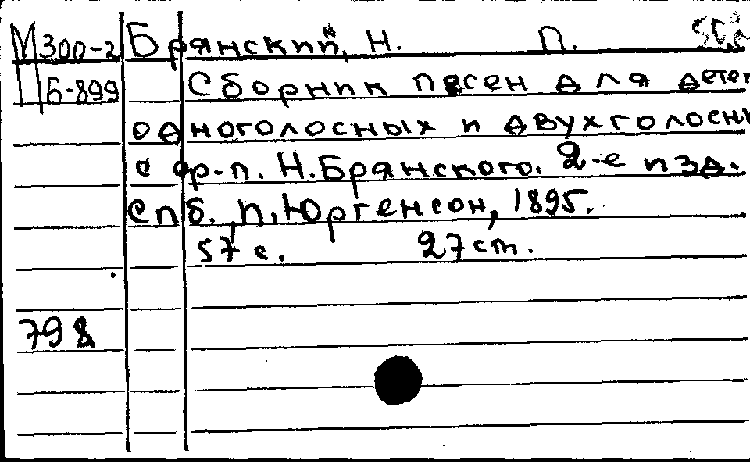 М300-2 Брянский, Н. П.
П Б-899 Сборник песен для детей
одноголосных и двухголосн
с ф-п. Н.Брянского. 2-е изд.
Спб., П.Юргенсон, 1895.
57 с. 27 см.
798